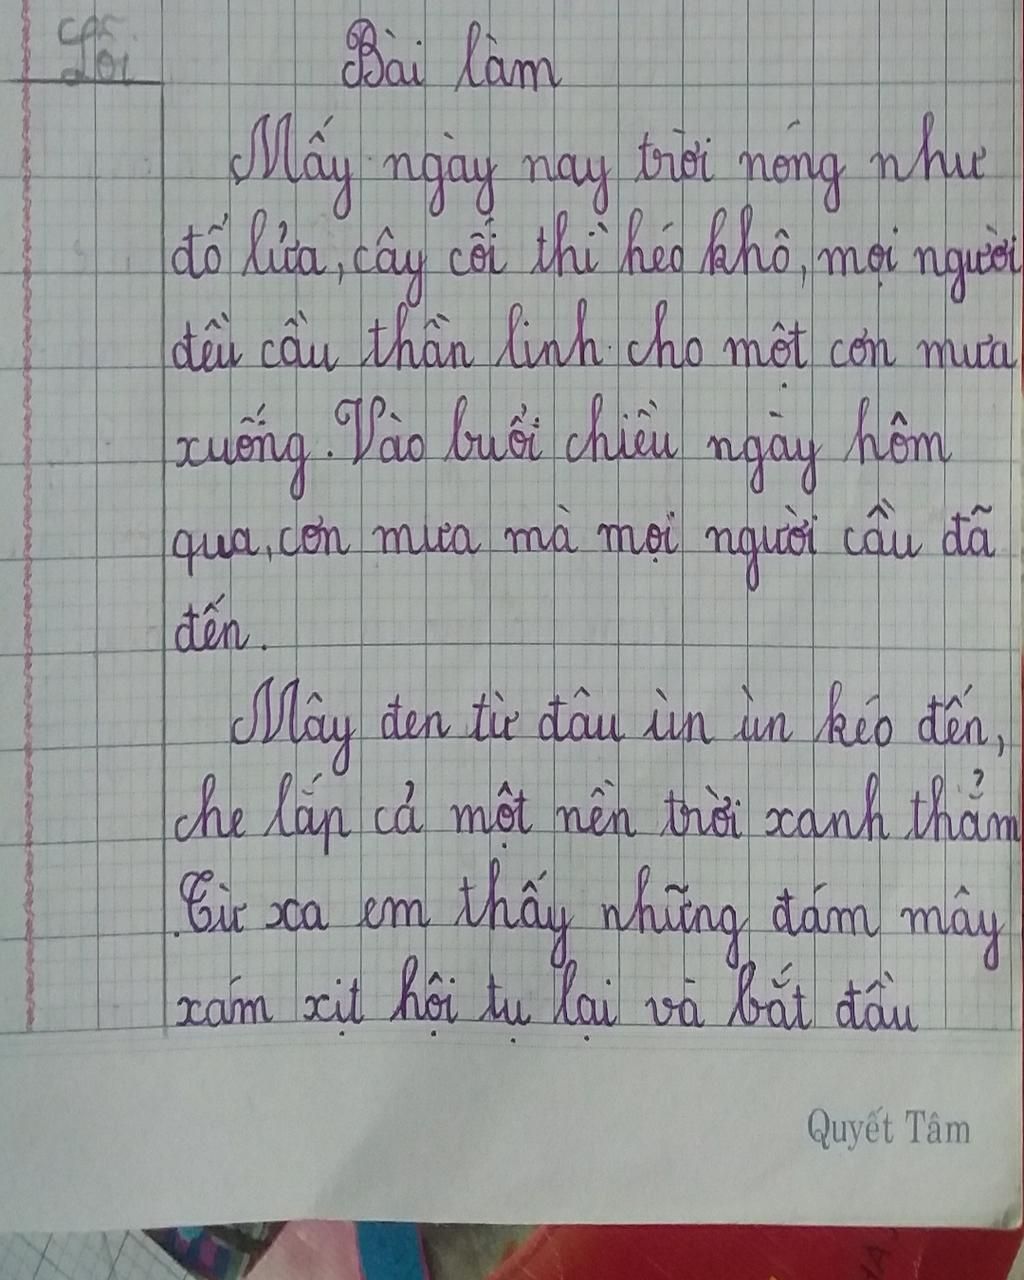 Lời
Bài làm
Mấy ngày nay trời nóng như
đổ lửa, cây cối thì héo khô, mọi người
đều cầu thần linh cho một cơn mưa
xuống. Vào buổi chiều ngày hôm
qua, cơn mưa mà mọi người cầu đã
đến.
Mây đen từ đâu ùn ùn kéo đến,
che lấp cả một nền trời xanh thẳm
Từ xa em thấy những đám mây
xám xịt hội tụ lại và bắt đầu
Quyết Tâm